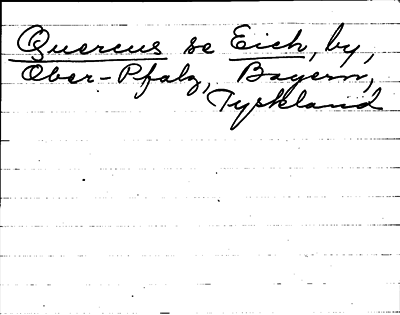 Quercus se Eich, by,
Ober-Pfalz, Bayern,
Tyskland